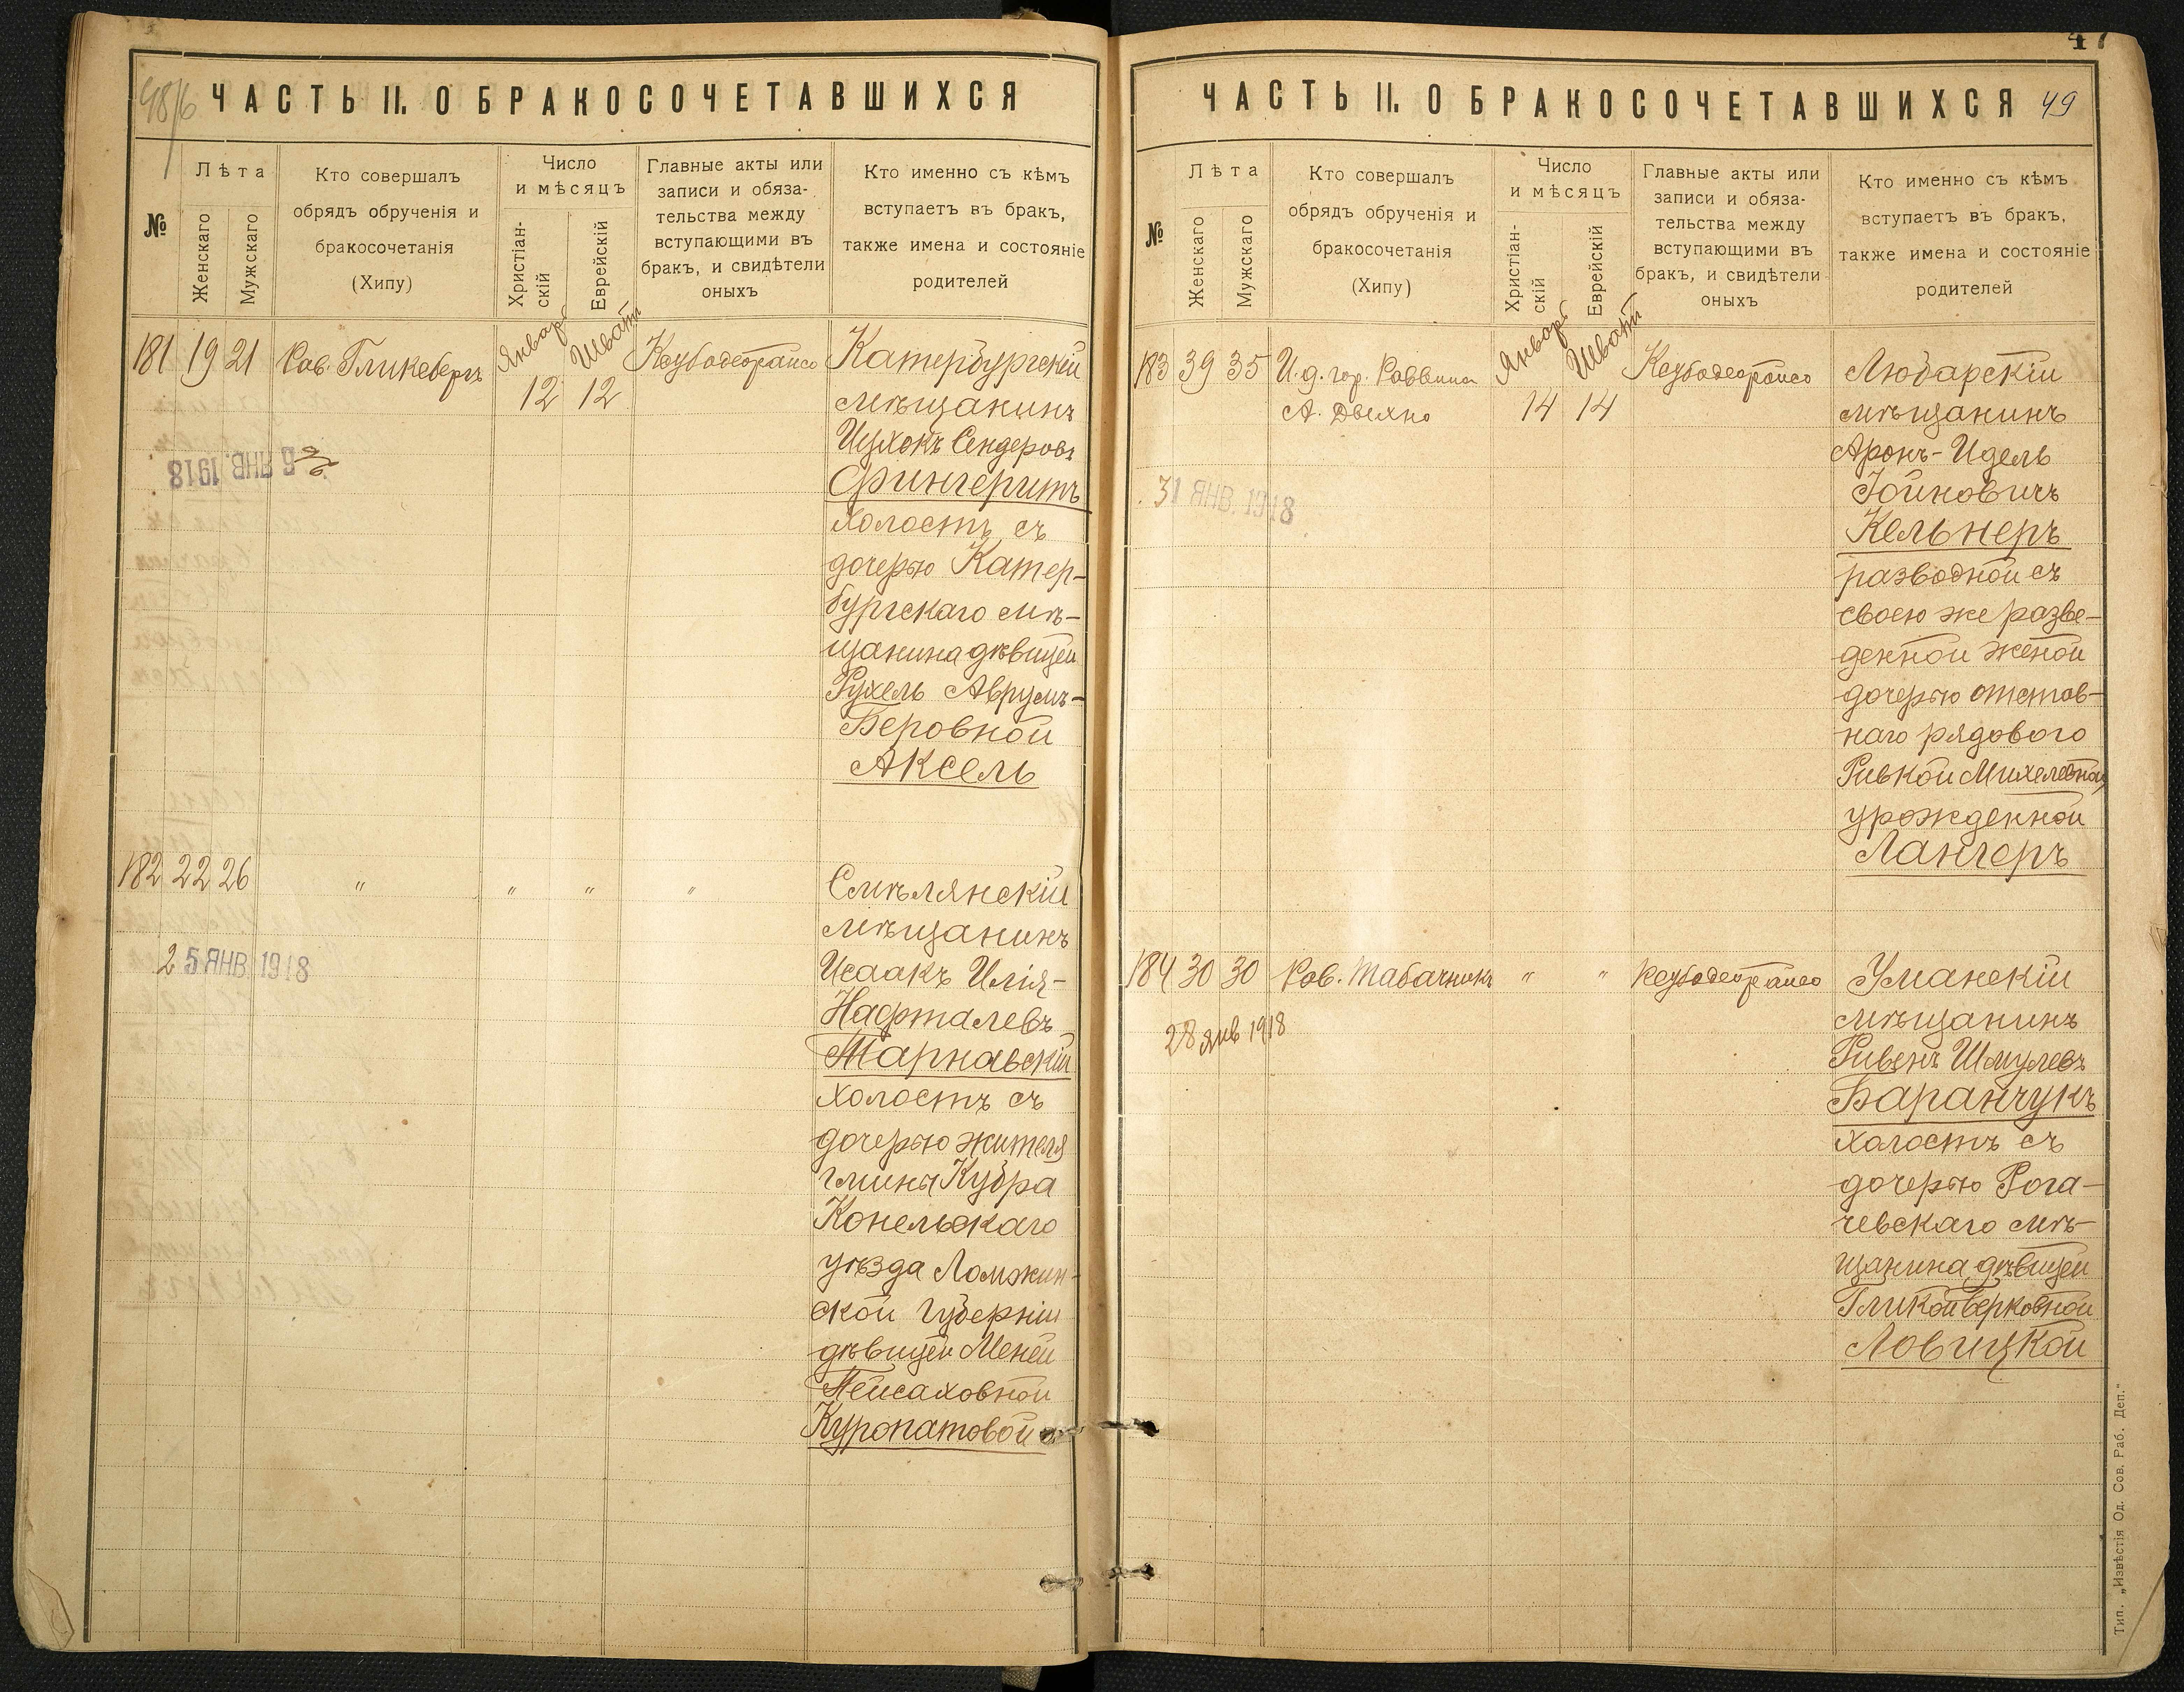 48/6 ЧАСТЬ II. О БРАКОСОЧЕТАВШИХСЯ
№
Лѣта
Женскаго
Мужскаго
Кто совершалъ
обрядъ обрученія и
бракосочетанія
(Хипу)
Число
и мѣсяцъ
Христіан-
скій
Еврейскій
Главные акты или
записи и обяза-
тельства между
вступающими въ
бракъ, и свидѣтели
оныхъ
Кто именно съ кѣмъ
вступаетъ въ бракъ,
также имена и состояніе
родителей
181 19 21 Рав. Гликсбергъ
Январь 12
Шватъ 12
Катербургскій
мѣщанинъ
Ицхокъ Сендеровъ
Фингеритъ
холостъ съ
дочерью Катер-
бургскаго мѣ-
щанина дѣвицей
Рухель Аврумъ-
Беровной
Аксель
5 ЯНВ. 1918
182 22 26 " " " "
Смѣлянскій
мѣщанинъ
Исаакъ Илія-
Нафталевъ
Тарнавскій
холостъ съ
дочерью жителя
гмины Кубра
Конельскаго
уѣзда Ломжин-
ской губерніи
дѣвицей Меней
Пейсаховной
Куропатовой
25 ЯНВ 1918
47
ЧАСТЬ II. О БРАКОСОЧЕТАВШИХСЯ 49
№
Лѣта
Женскаго
Мужскаго
Кто совершалъ
обрядъ обрученія и
бракосочетанія
(Хипу)
Число
и мѣсяцъ
Христіан-
скій
Еврейскій
Главные акты или
записи и обяза-
тельства между
вступающими въ
бракъ, и свидѣтели
оныхъ
Кто именно съ кѣмъ
вступаетъ въ бракъ,
также имена и состояніе
родителей
183 39 35 И. д. гор. Раввина
Январь 14
Шватъ 14
Любарскій
мѣщанинъ
Аронъ-Идель
Іойновичъ
Кельнеръ
разводной съ
своею же разве-
денной женой
дочерью отстав-
наго рядового
Ривкой Михелевной,
урожденной
Лангеръ
31 ЯНВ. 1918
184 30 30 Рав. Табачникъ " "
Уманскій
мѣщанинъ
Ривенъ Шмулевъ
Баранчукъ
холостъ съ
дочерью Рога-
чевскаго мѣ-
щанина дѣвицей
Гликой Берковной
Ловицкой
28 янв 1918
Тип. „Извѣстія Од. Сов. Раб. Деп."